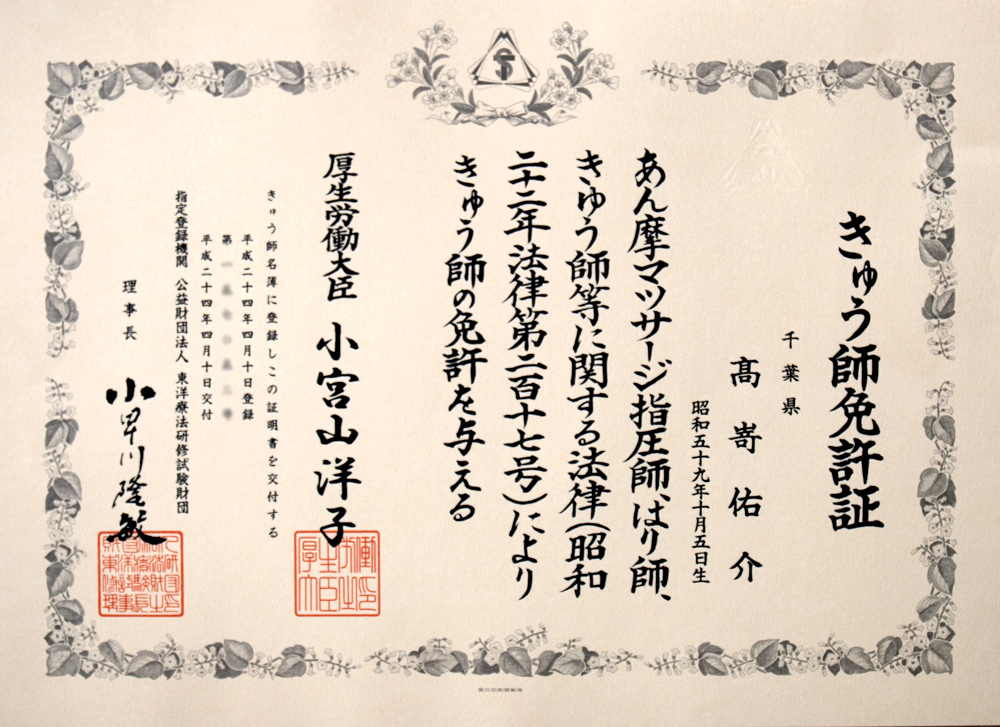 きゅう師免許証
千葉県
髙嵜佑介
昭和五十九年十月五日生
あん摩マツサージ指圧師、はり師、
きゆう師等に関する法律(昭和
二十二年法律第二百十七号)により
きゅう師の免許を与える
厚生労働大臣 小宮山洋子
きゅう師名簿に登録しこの証明書を交付する
平成二十四年四月十日登録
第
号
平成二十四年四月十日交付
指定登録機関 公益財団法人 東洋療法研修試験財団
理事長 小早川隆敏